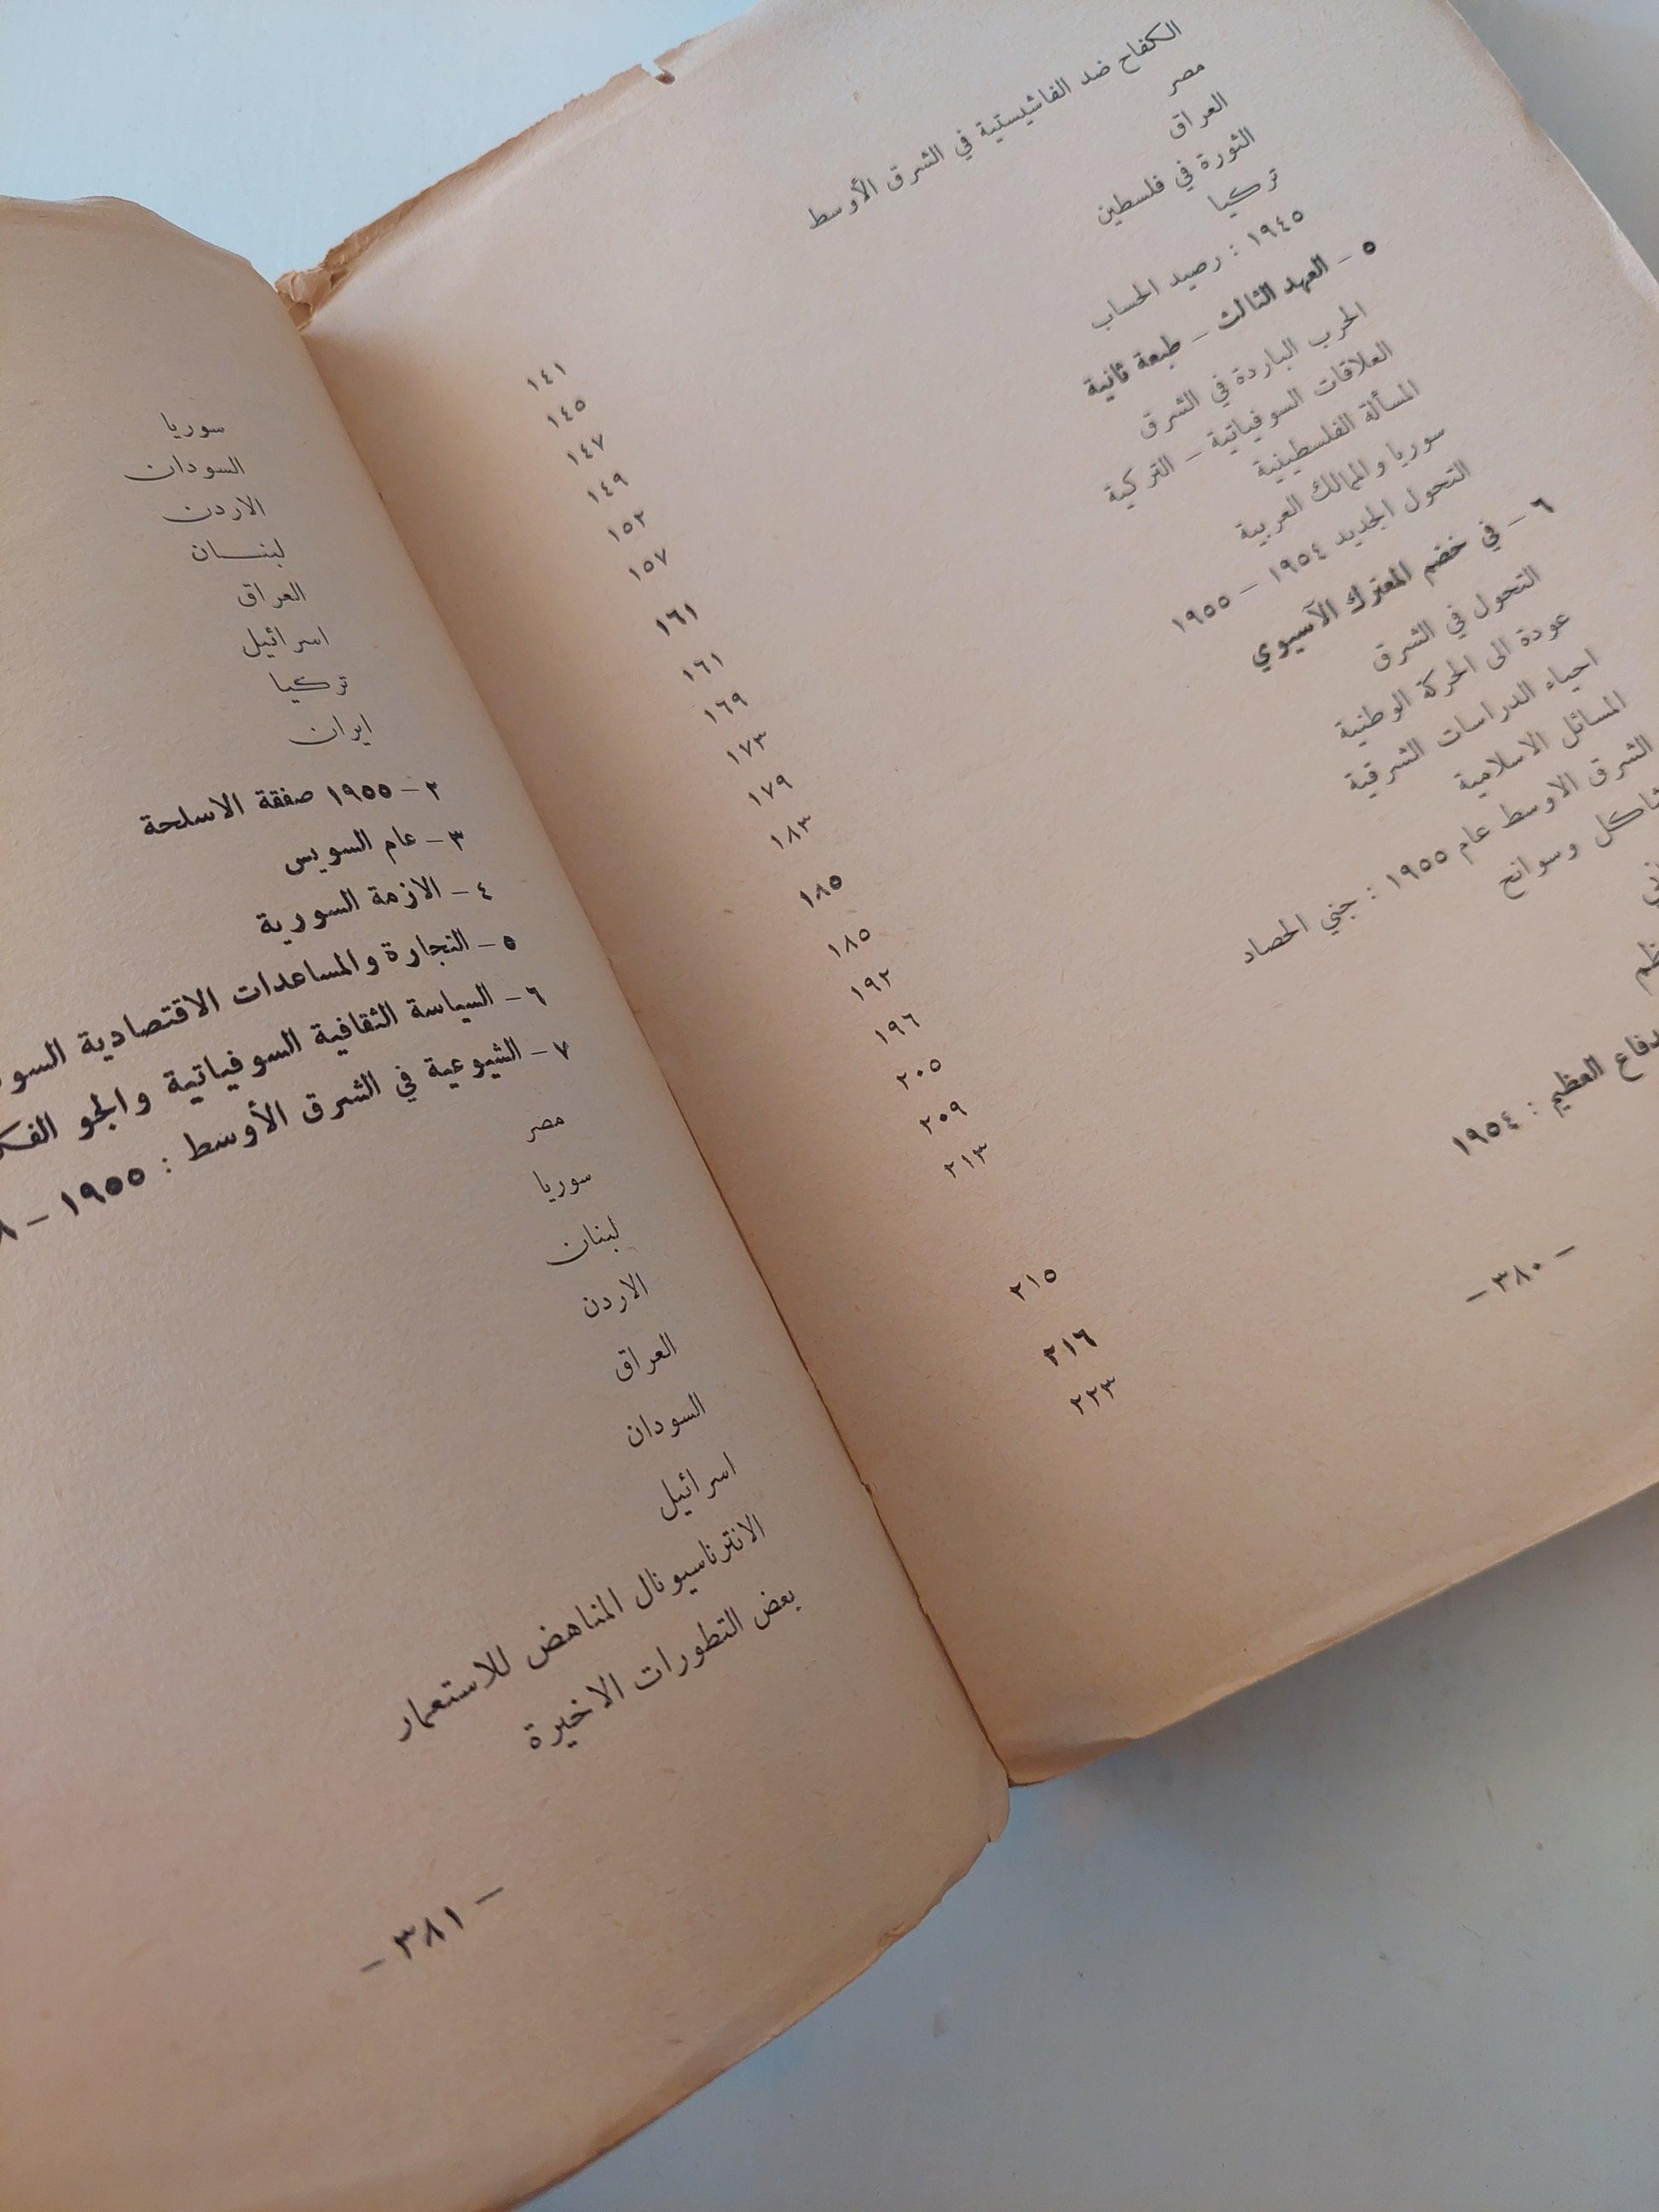 الكفاح ضد الفاشيستية في الشرق الأوسط ١٤١
مصر ١٤٥
العراق ١٤٧
الثورة في فلسطين ١٤٩
تركيا ١٥٢
١٩٤٥ : رصيد الحساب ١٥٧
٥ – العهد الثالث – طبعة ثانية ١٦١
الحرب الباردة في الشرق ١٦١
العلاقات السوفياتية – التركية ١٦٩
المسألة الفلسطينية ١٧٣
سوريا والممالك العربية ١٧٩
التحول الجديد ١٩٥٤ – ١٩٥٥ ١٨٣
٦ – في خضم المعترك الآسيوي ١٨٥
التحول في الشرق ١٨٥
عودة الى الحركة الوطنية ١٩٢
احياء الدراسات الشرقية ١٩٦
المسائل الاسلامية ٢٠٥
الشرق الاوسط عام ١٩٥٥ : جني الحصاد ٢٠٩
وسوانح ٢١٣
٢١٥
٢١٦
العظيم : ١٩٥٤ ٢٢٣
– ٣٨٠ –
سوريا
السودان
الاردن
لبنــان
العراق
اسرائيل
تركيا
ايران
٢ – ١٩٥٥ صفقة الاسلحة
٣ – عام السويس
٤ – الازمة السورية
٥ – التجارة والمساعدات الاقتصادية
٦ – السياسة الثقافية السوفياتية والجو
٧ – الشيوعية في الشرق الأوسط : ١٩٥٥ –
مصر
سوريا
لبنان
الاردن
العراق
السودان
اسرائيل
الانترناسيونال المناهض للاستعمار
بعض التطورات الاخيرة
– ٣٨١ –